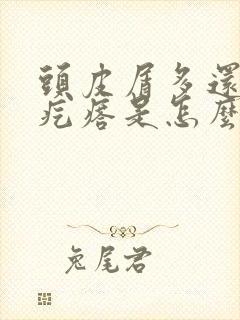 頭皮屑多還
疙瘩是怎麼
兔尾君